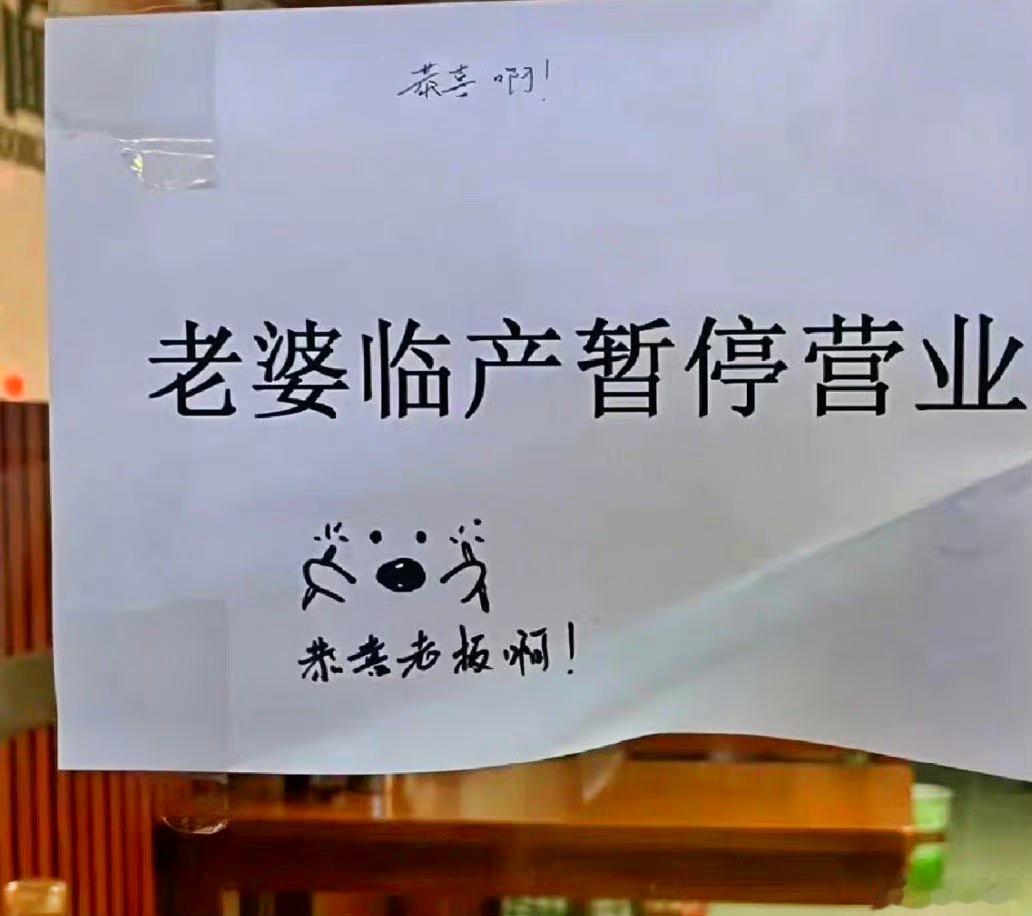 恭喜啊！
老婆临产暂停营业
恭喜老板啊！